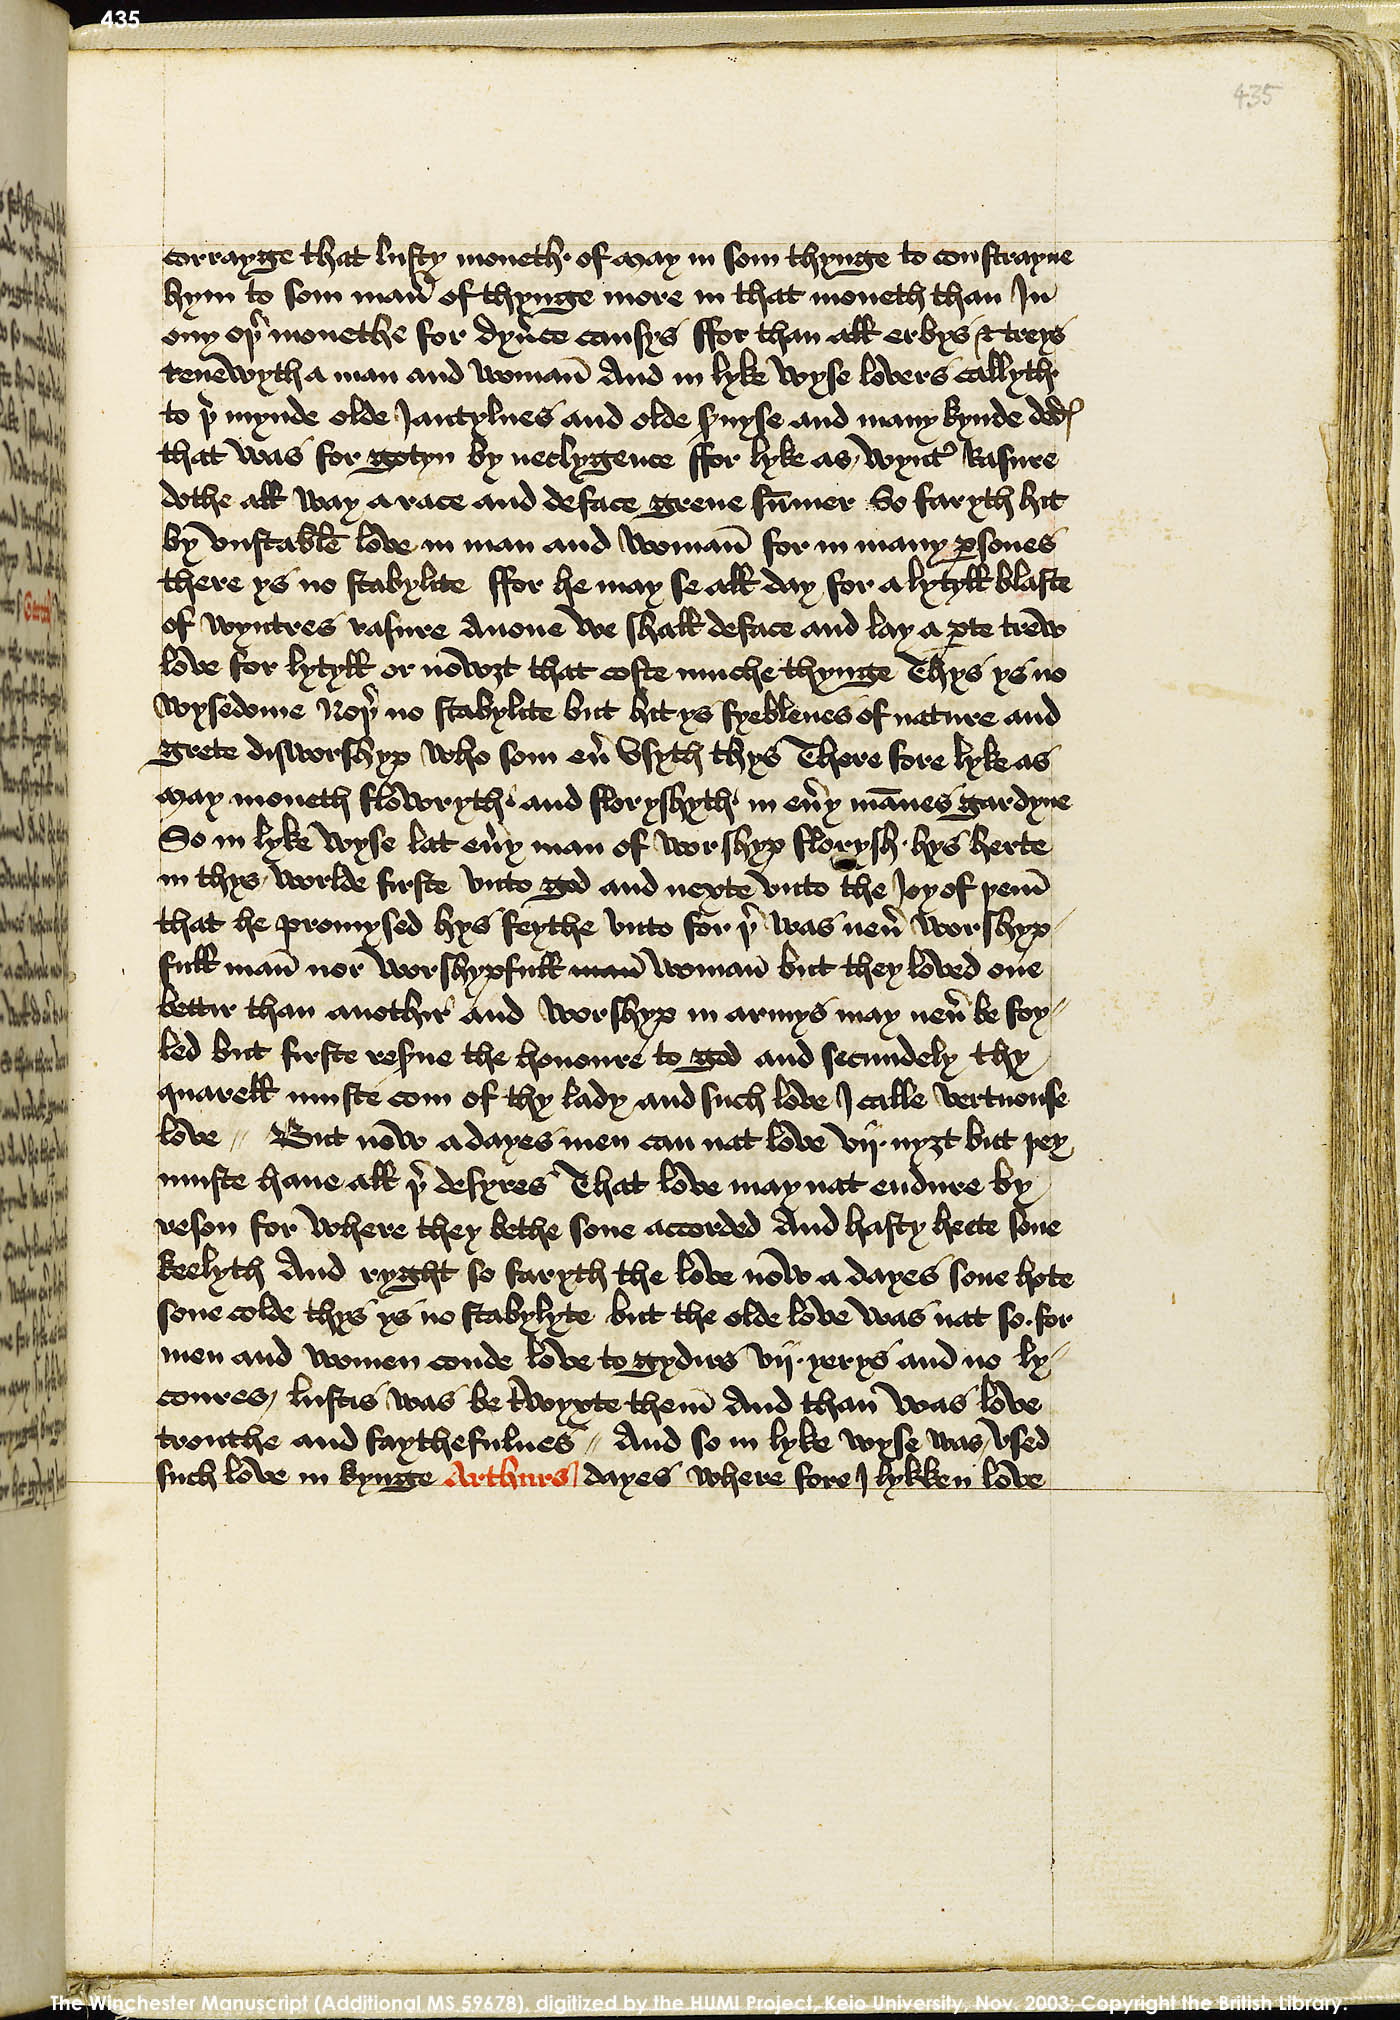 435
435
corrayge that lusty moneth of may in som thynge to constrayne
hym to som man̄ of thynge more in that moneth than In
ony oþ̉ monethe for dyủce causys ffor than all erbys & treys
renewyth a man and woman̄ And in lyke wyse lovers callyth
to þ̉ mynde olde Jantylnes and olde s̉uyse and many kynde ded
that was for gotyn by neclygence ffor lyke as wynt̉ Rasure
dothe all way a race and deface grene sūmer So faryth hit
by vnstable love in man and woman̄ for in many ꝑsones
there ys no stabylite ffor he may se all day for a lytyll blaste
of wyntres rasure anone we shall deface and lay a ꝑte trew
love for lytyll or nowȝt that coste muche thynge Thys ys no
wysedome Noþ̉ no stabylite but hit ys fyeblenes of nature and
grete disworshyp who som eủ vsyth thys There fore lyke as
may moneth flowryth and floryshyth in eủy mānes gardyne
So in lyke wyse lat eủy man of worshyp florysh hys herte
in thys worlde firste vnto god and nexte vnto the Joy of þem̄
that he promysed hys feythe vnto for þ̉ was neủ worshyp
full man̄ nor worshypfull man̄ woman̄ but they loved one
bettir than anothir and worshyp in armys may neủ be foy
led but firste res̉ue the honoure to god and secundely thy
quarell muste com of thy lady and such love I calle vertuouse
love // But now a dayes men can nat love vij nyȝt but þey
muste haue all þ̉ desyres That love may nat endure by
reson for where they bethe sone accorded And hasty heete sone
keelyth And ryght so faryth the love now a dayes sone hote
sone colde thys ys no stabylyte but the olde love was nat so for
men and women coude love to gydirs vij yerys and no ly
coures lustis was be twyxte them̄ And than̄ was love
trouthe and faythefulnes // And so in lyke wyse was vsed
such love in kynge Arthurs dayes where fore I lykken love
The Winchester Manuscript (Additional MS 59678), digitized by the HUMI Project, Keio University, Nov. 2003; Copyright the British Library.